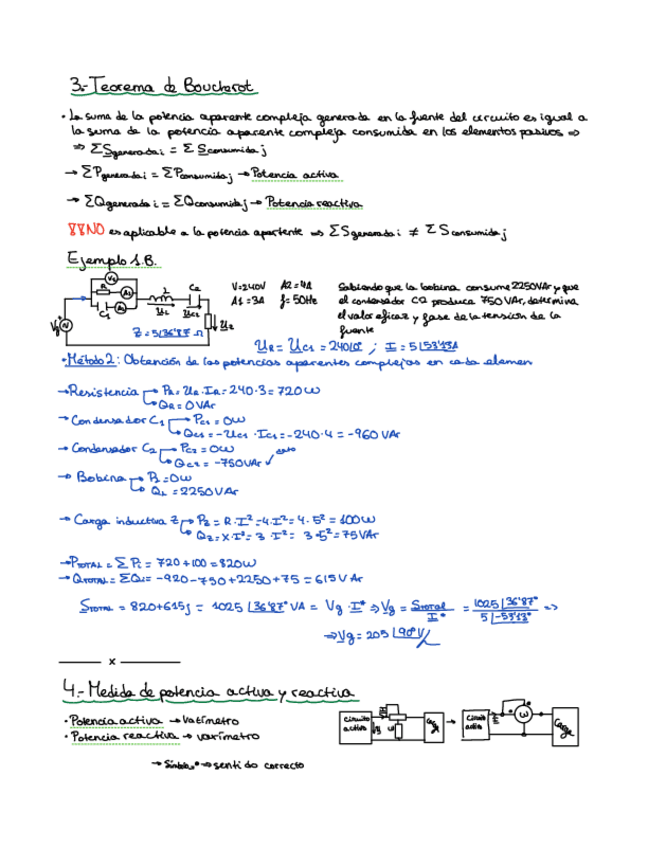 3.- Teorema de Boucherot
• La suma de la potencia aparente compleja generada en la fuente del circuito es igual a
la suma de la potencia aparente compleja consumida en los elementos pasivos ⇒
⇒ ΣSgenerada i = ΣSconsumida j
→ ΣPgenerada i = ΣPconsumida j → Potencia activa
→ ΣQgenerada i = ΣQconsumida j → Potencia reactiva
NO es aplicable a la potencia aparente ⇒ ΣSgenerada i ≠ ΣSconsumida j
Ejemplo 1.B.
R A1 C1 A2 L C2
UL UC2 UZ
Vg
Z = 5|36'87° Ω
V=240V A2=4A
A1=3A f=50Hz
Sabiendo que la bobina consume 2250VAr y que
el condensador C2 produce 750VAr, determina
el valor eficaz y fase de la tensión de la
fuente
UR = UC1 = 240|0° ; I = 5|53'13A
• Método 2: Obtención de las potencias aparentes complejas en cada elemen
→ Resistencia → PR = UR·IR = 240·3 = 720W
→ QR = 0VAr
→ Condensador C1 → PC1 = 0W
→ QC1 = -UC1·IC1 = -240·4 = -960VAr
→ Condensador C2 → PC2 = 0W
→ QC2 = -750VAr ✓
→ Bobina → PL = 0W
→ QL = 2250VAr
→ Carga inductiva Z → PZ = R·I² = 4·I² = 4·5² = 100W
→ QZ = X·I² = 3·I² = 3·5² = 75VAr
→ PTOTAL = ΣPi = 720+100 = 820W
→ QTOTAL = ΣQi = -920-750+2250+75 = 615VAr
STOTAL = 820+615j = 1025|36'87° VA = Vg·I* ⇒ Vg = STOTAL / I* = 1025|36'87° / 5|-53'13° ⇒
⇒ Vg = 205|90° V
x
4.- Medida de potencia activa y reactiva
• Potencia activa → vatímetro
• Potencia reactiva → varímetro
circuito
activo
Vg
carga
→
Circuito
activo
W
Carga
→ sentido correcto